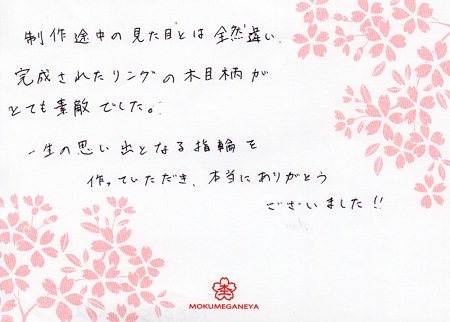 制作途中の見た目とは全然違い、
完成されたリングの木目柄が
とても素敵でした。
一生の思い出となる指輪を
作っていただき、本当にありがとう
ございました!!
MOKUMEGANEYA